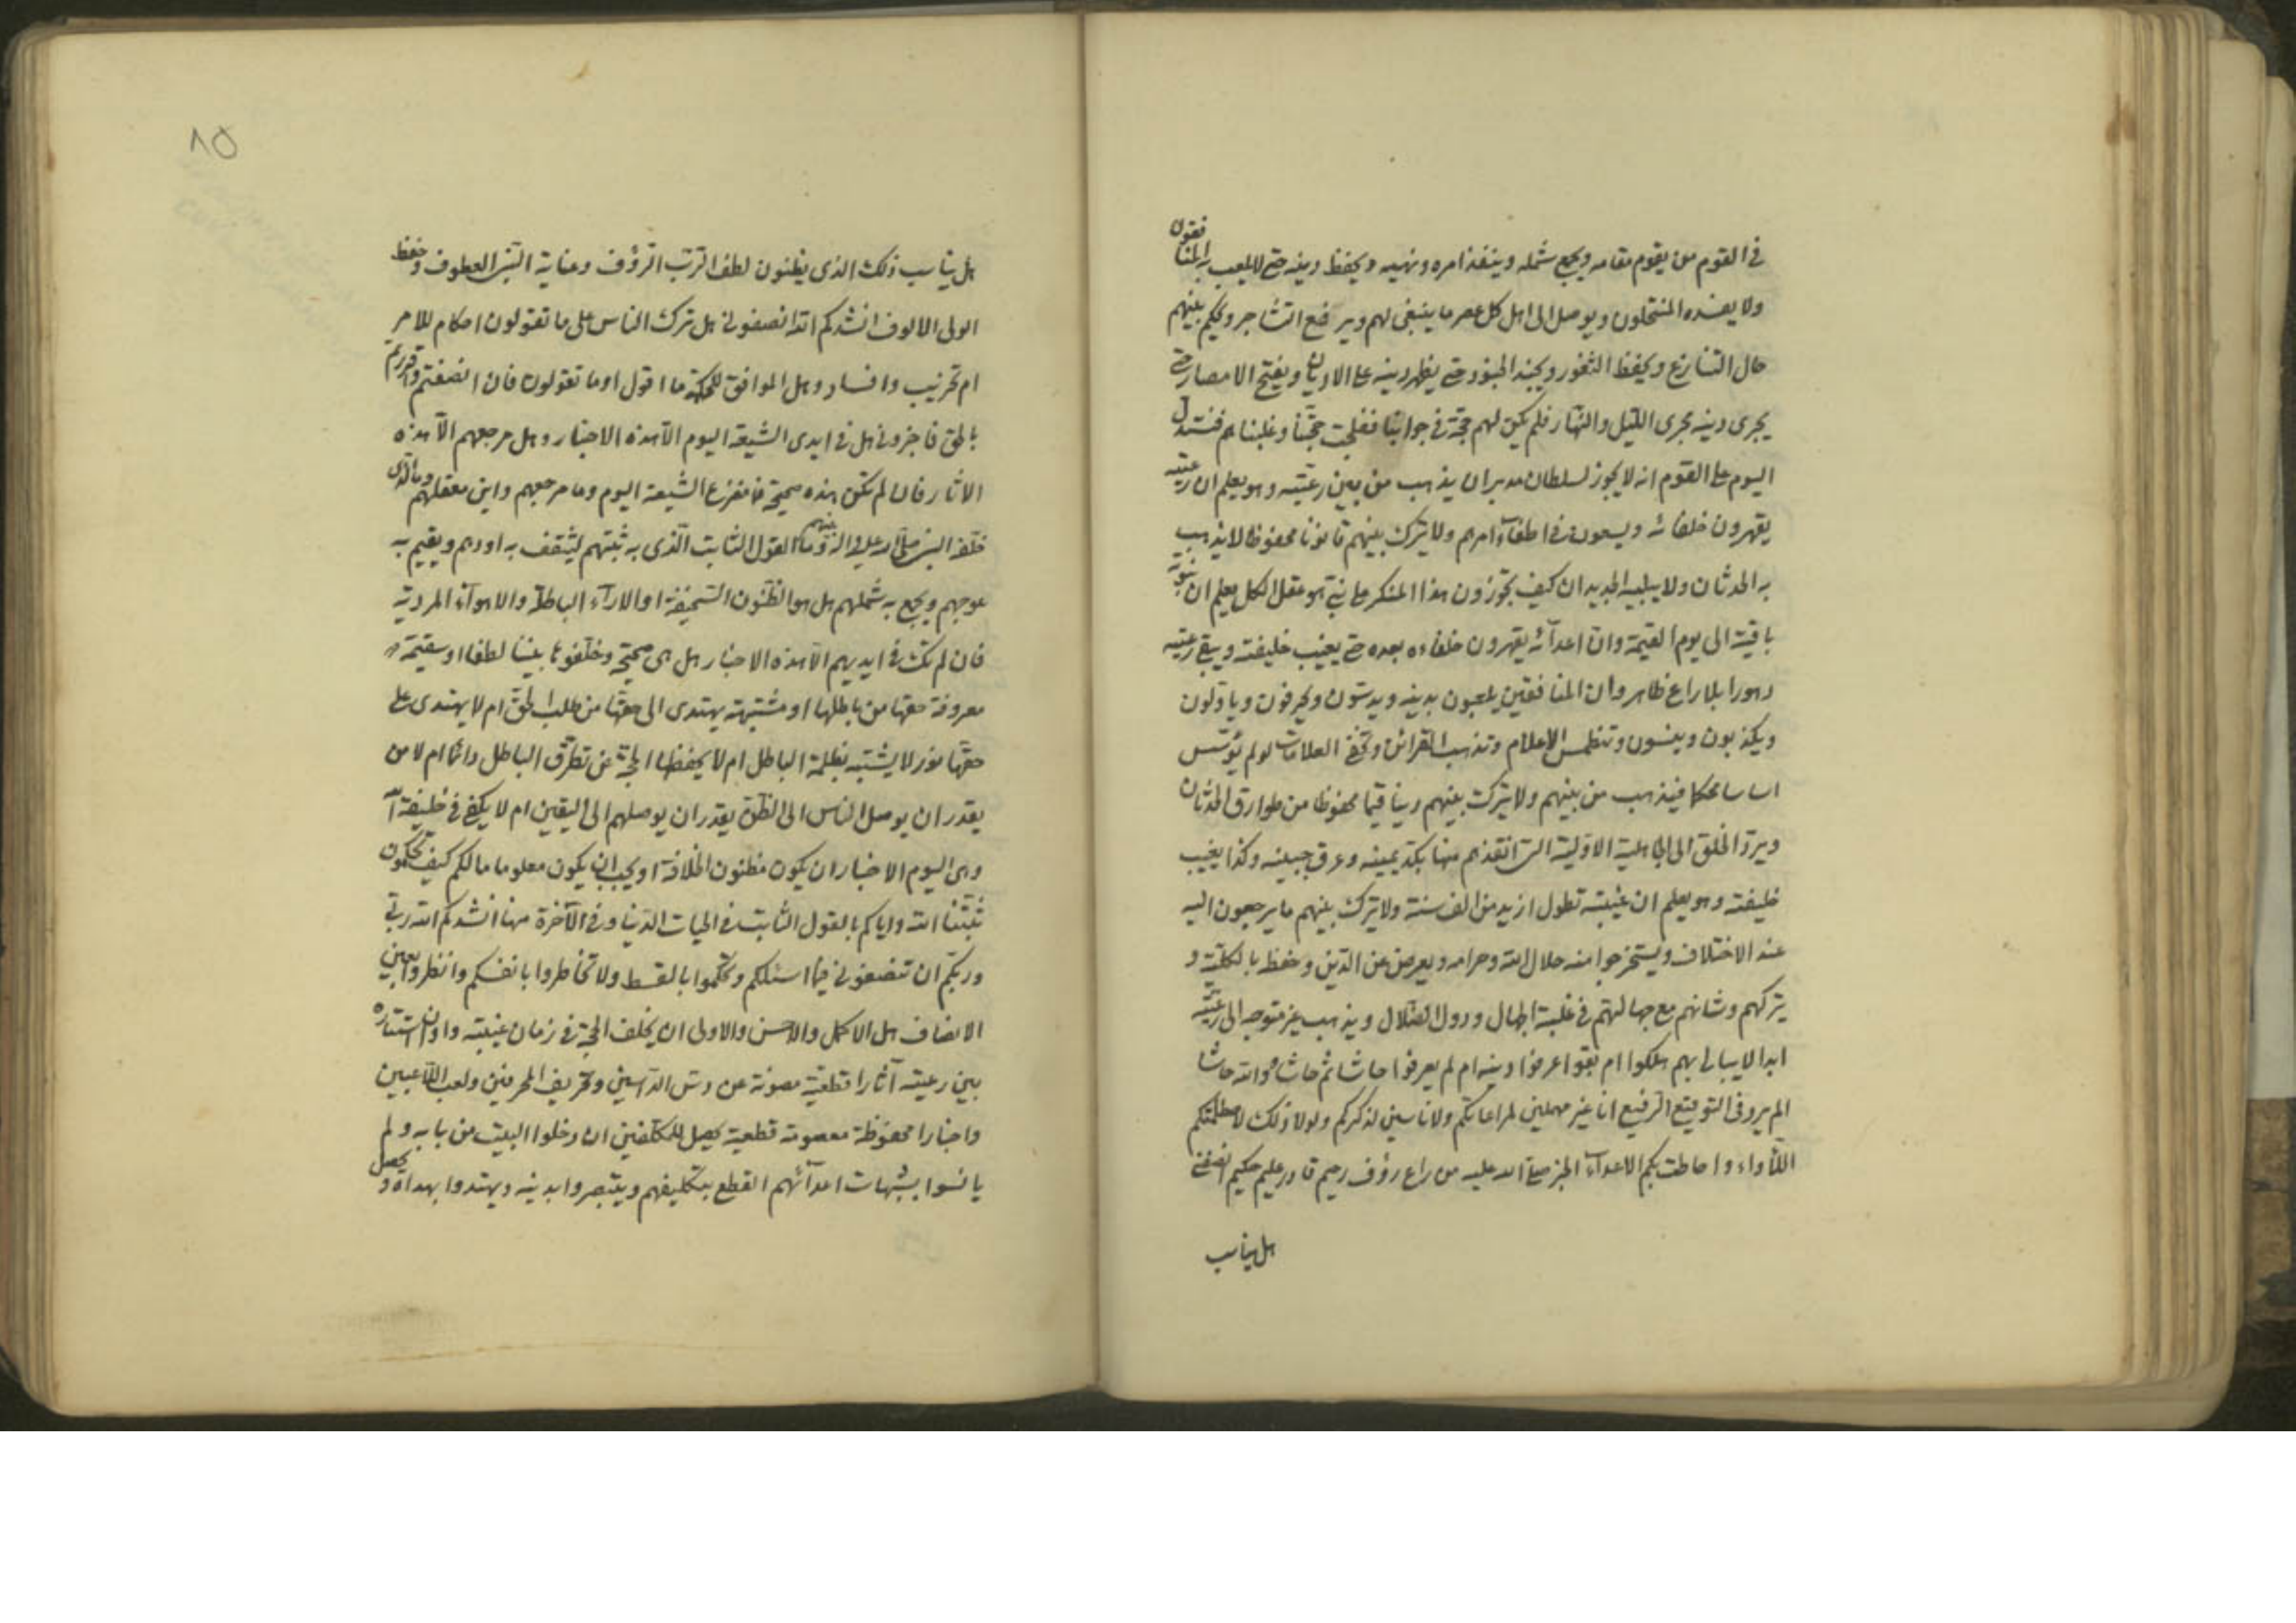 في القوم من يقوم مقامه ويجمع شمله وينفذ امره ونهيه ويحفظ دينه حتى لايلعب به المنافقون
ولا يفسده المنتحلون ويوصل الى اهل كل عصر ما ينبغي لهم ويرفع التشاجر ويحكم بينهم
حال التنازع ويحفظ الثغور ويجند الجنود حتى يظهر دينه على الاديان ويفتح الامصار حتى
يجرى دينه مجرى الليل والنهار فلم يكن لهم حجة في جوابنا ففلجت حجتنا وغلبناهم فنستدل
اليوم على القوم انه لا يجوز لسلطان مدبر ان يذهب من بين رعيته وهو يعلم ان رعيته
يقهرون خلفائه ويسعون في اطفاء امرهم ولا يترك بينهم قانونا محفوظا لا يذهب
به الحدثان ولا يبليه الجديدان كيف تجوزون هذا المنكر على نبي هو عقل الكل يعلم ان نبوته
باقية الى يوم القيمة وان اعدآئه يقهرون خلفاءه بعده حتى يغيب خليفته ويبقى رعيته
دهورا بلا راع ظاهر وان المنافقين يلعبون بدينه ويدسون ويحرفون وياولون
ويكذبون وينسون وتنطمس الاعلام وتذهب القرائن وتخفى العلامات لو لم يؤسس
اساسا محكما فيذهب من بينهم ولا يترك بينهم دينا قيما محفوظا من طوارق الحدثان
ويرد الخلق الى الجاهلية الاولية التى انقذهم منها بكد يمينه وعرق جبينه وكذا يغيب
خليفته وهو يعلم ان غيبته تطول ازيد من الف سنة ولا يترك بينهم ما يرجعون اليه
عند الاختلاف ويستخرجوا منه حلال الله وحرامه ويعرض عن الدين وحفظه بالكلية و
يتركهم وشانهم مع جهالتهم في غلبة الجهال ودول الضلال ويذهب غير متوجه الى رعيته
ابدا لا يبالى بهم هلكوا ام بقوا عرفوا دينه ام لم يعرفوا حاشا ثم حاشا والله حاشا
الم يرو في التوقيع الرفيع انا غير مهملين لمراعاتكم ولا ناسين لذكركم ولولا ذلك لاصطلمتكم
اللأواء واحاطت بكم الاعدآء الخبر صلى الله عليه من راع رؤف رحيم قادر عليم حكيم انصفني
هل يناسب
٨٥
هل يناسب ذلك الذى يظنون لطف الرب الرؤف وعناية النبى العطوف وحفظ
الولى الالوف انشدكم الله انصفوني هل ترك الناس على ما تقولون احكام للامر
ام تخريب وافساد وهل الموافق للحكمة ما اقول او ما تقولون فان انصفتم واقررتم
بالحق فاخبروني هل في ايدى الشيعة اليوم الا هذه الاخبار وهل مرجعهم الا هذه
الاثار فان لم تكن هذه صحيحة فما مفزع الشيعة اليوم وما مرجعهم واين معقلهم وما الذى
خلفه النبى صلى الله عليه واله فيهم وما القول الثابت الذى به ثبتهم ليثقف به اودهم ويقيم به
عوجهم ويجمع به شملهم هل هو الظنون السخيفة او الاراء الباطلة والاهوآء المردية
فان لم تك في ايديهم الا هذه الاخبار هل هى صحيحة وخلفوها بيننا لطفا او سقيمة
معروفة حقها من باطلها او مشتبهة يهتدى الى حقها من طلب الحق ام لا يهتدى على
حقها نور لا يشتبه بظلمة الباطل ام لا يحفظها الحجة عن تطرق الباطل دائما ام لا من
يقدر ان يوصل الناس الى الظن يقدر ان يوصلهم الى اليقين ام لا يكفى في خليفة الله
وهى اليوم الاخبار ان يكون مظنون الخلافة او يجب ان يكون معلوما ما لكم كيف تحكمون
ثبتنا الله واياكم بالقول الثابت في الحيات الدنيا وفي الآخرة مهنا انشدكم الله ربي
وربكم ان تنصفوني فيما اسئلكم وتحكموا بالقسط ولا تخاطروا بانفسكم وانظروا بعين
الانصاف هل الاكمل والاحسن والاولى ان يخلف الحجة في زمان غيبته واوان استتاره
بين رعيته آثارا قطعية مصونة عن دس الداسين وتحريف المحرفين ولعب اللاعبين
واخبارا محفوظة معصومة قطعية يحصل للمكلفين ان دخلوا البيت من بابه ولم
يانسوا بشبهات اعدآئهم القطع بتكليفهم ويتبصروا بدينه ويهتدوا بهداه ويحصل